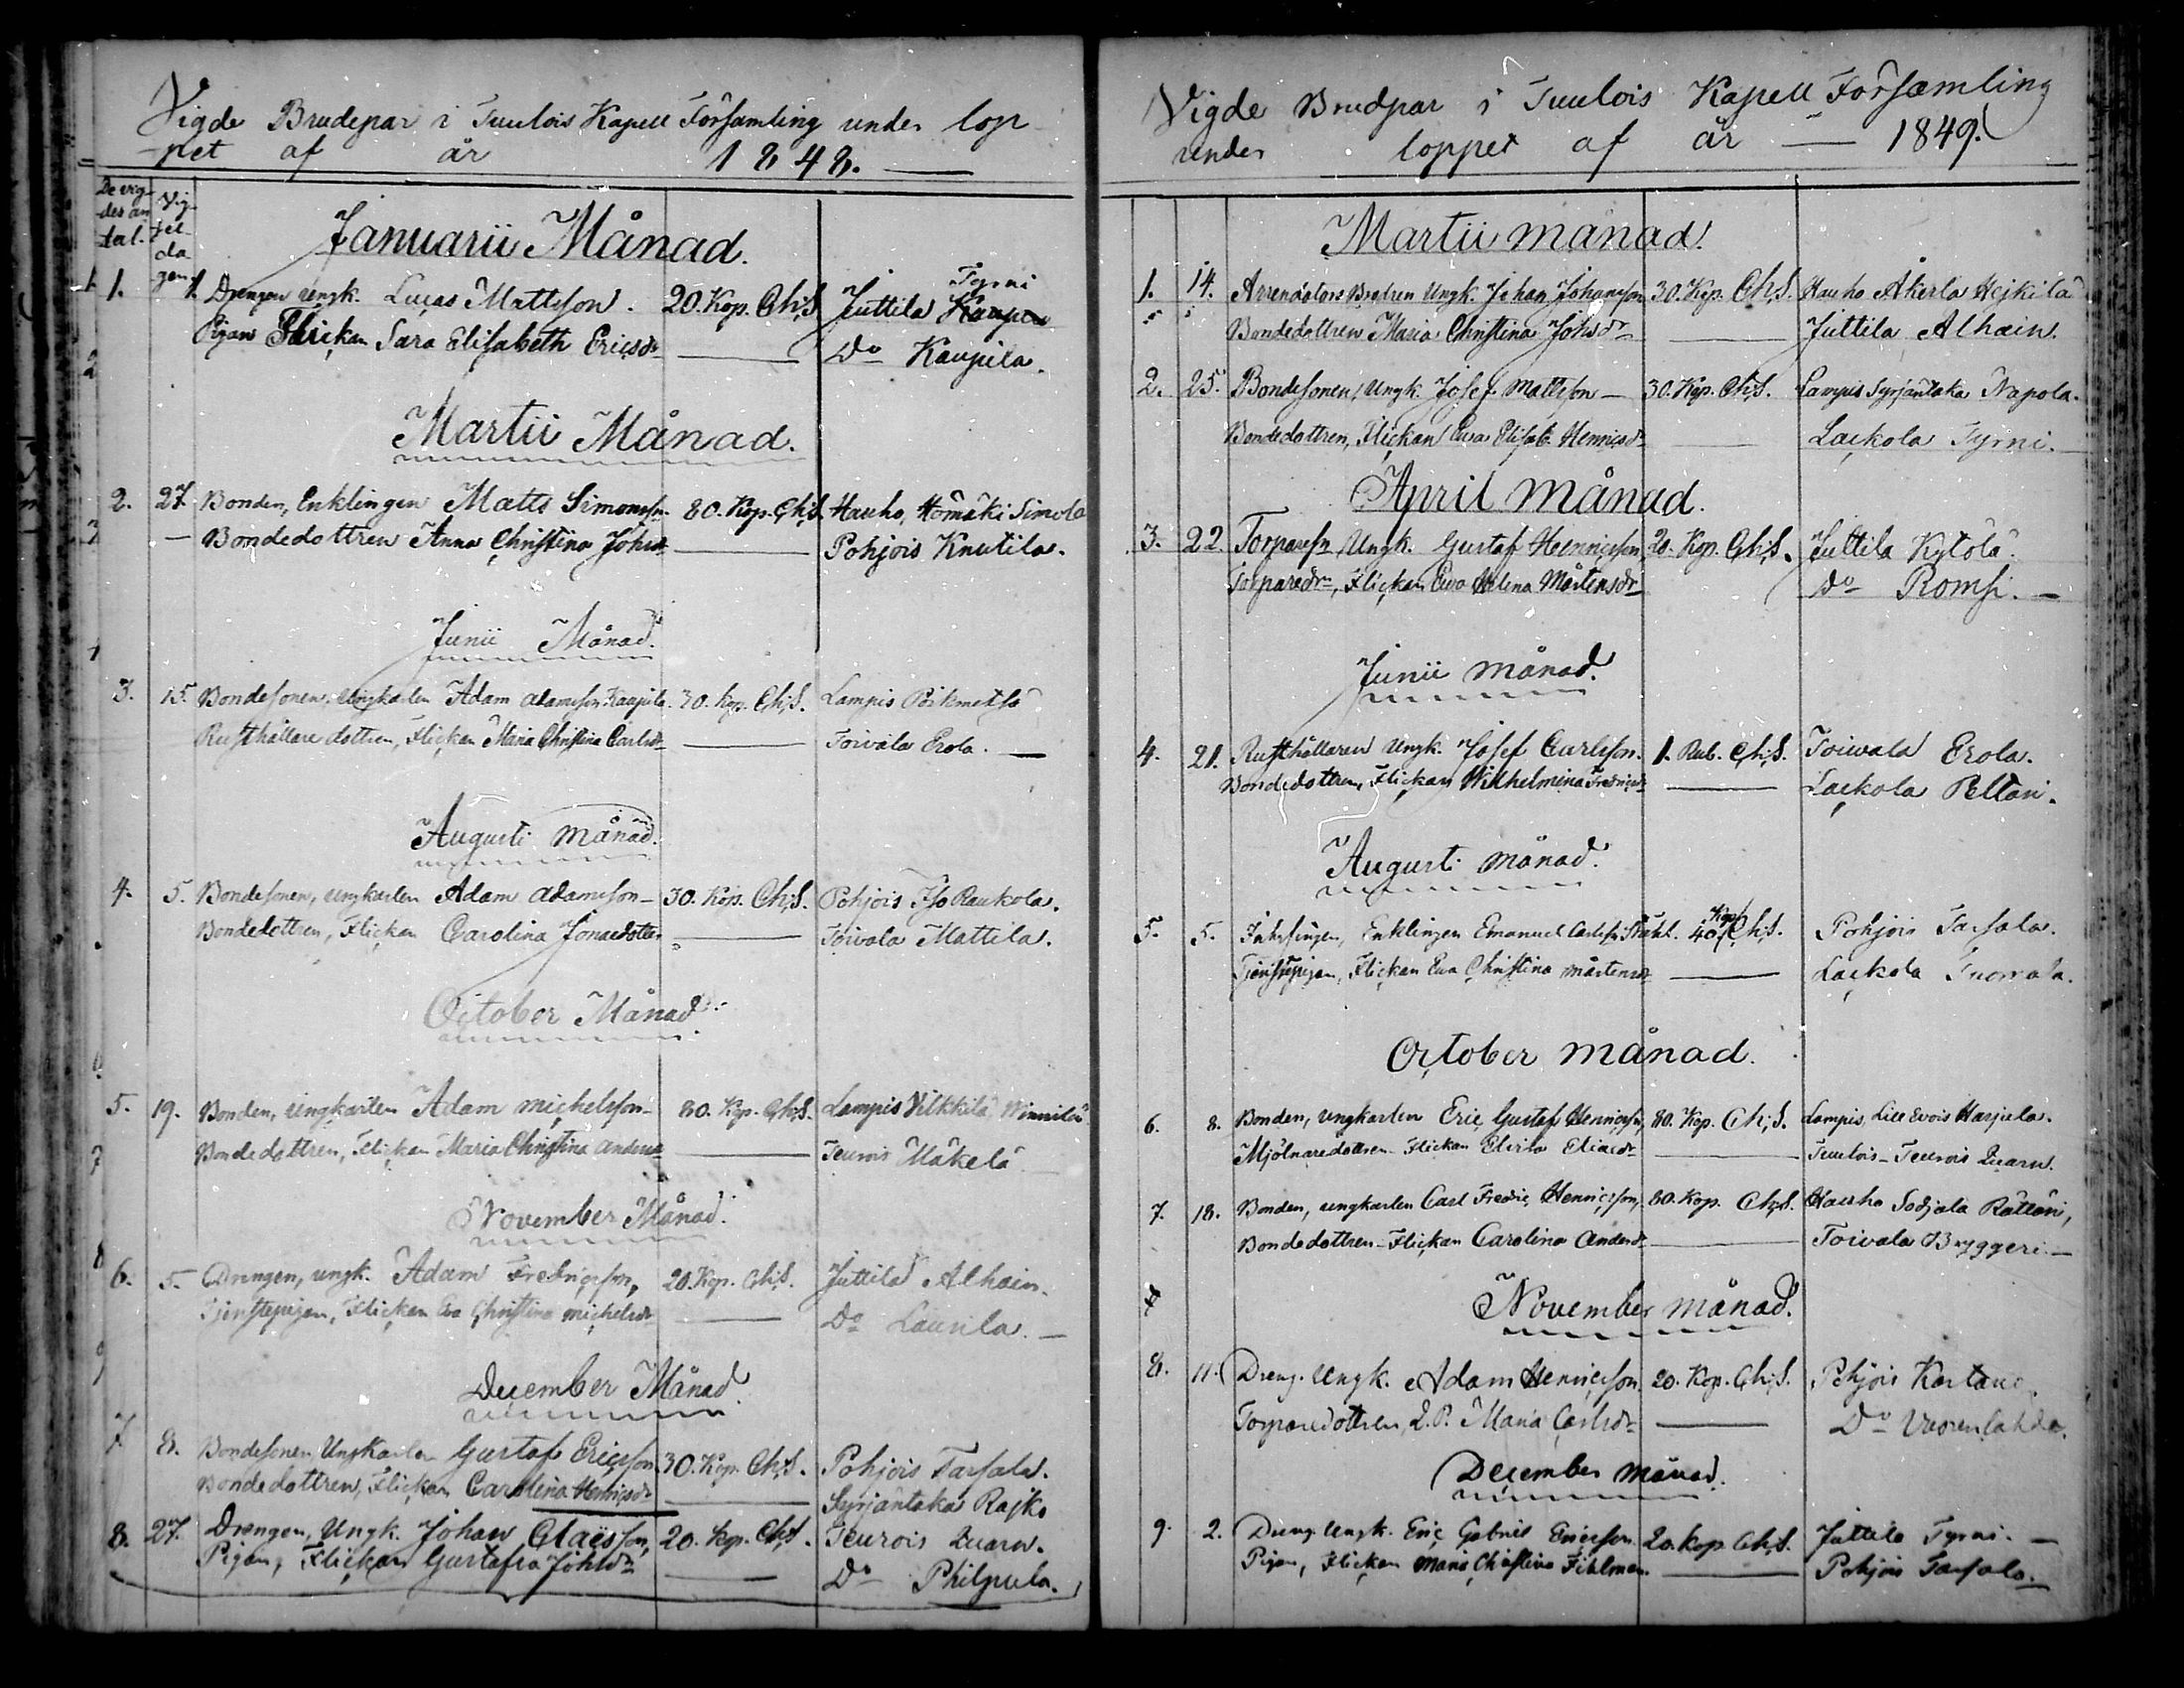 Vigde Brudepar i Tuulois Kapell Församling under lop-
-pet af år 1848. —
De vig-
-des an
tal.
Vig-
sel-
da
gen.
Januarii Månad.
1. 1. Drengen ungk. Lucas Mattsson. 20. Kop. Ch;S. Juttila Tyrni
Pigan Flickan Sara Elisabeth Ericsdr — Do Kaupila.
Martii Månad.
2. 27. Bonden, Enklingen Matts Simonsson 80. Kop. Ch;S. Hauho, Hömäki Simola
— Bondedottren Anna Christina Johsdr — Pohjois Knutila.
Junii Månad.
3. 15. Bondesonen, ungkarlen Adam Adamsson Kaupila. 30. Kop. Ch;S. Lampis Pörkmetsä
Rusthållare dottren, Flickan Maria Christina Carlsdr — Toivala Erola. —
Augusti månad.
4. 5. Bondesonen, ungkarlen Adam Adamsson — 30. Kop. Ch;S. Pohjois Iso Raukola.
Bondedottren, Flickan Carolina Jonaedotter — Toivola Mattila.
October Månad.
5. 19. Bonden, ungkarlen Adam Michelsson — 80. Kop. Ch;S. Lampis Vilkkilä Winnilä
Bondedottren, Flickan Maria Christina Andersdr — Teurois Mäkelä
November Månad.
6. 5. Drengen, ungk. Adam Fredricsson, 20. Kop. Ch;S. Juttila Alhain.
Tjenstepigan, Flickan Eva Christina Michelsdr — Do Laurila. —
December Månad.
7. 8. Bondesonen Ungkarlen Gustaf Ericsson 30. Kop. Ch;S. Pohjois Tarsala.
Bondedottren, Flickan Carolina Henricsdr — Syrjäntaka Rajko
8. 27. Drengen, Ungk. Johan Claësson, 20. Kop. Ch;S. Teurois Quarn.
Pigan, Flickan Gustafva Johsdr — Do Philpula.
Vigde Brudpar i Tuulois Kapell Församling
under loppet af år — 1849.
Martii månad.
1. 14. Arrendators Brodren Ungk. Johan Johansson 30. Kop. Ch;S. Hauho Åkerla Hejkilä
Bondedottren Maria Christina Johsdr — Juttila Alhain.
2. 25. Bondesonen, Ungk. Josef Mattsson — 30. Kop. Ch;S. Lampis Syrjäntaka Napola.
Bondedottren, Flickan Eva Elisab. Henricsdr — Lackola Tyrni. —
April månad.
3. 22. Torparesn, Ungk. Gustaf Henricsson, 20. Kop. Ch;S. Juttila Kytölä.
Torparedrn, Flickan Eva Helena Mårtensdr Do Romsi. —
Junii månad.
4. 21. Rusthållaren Ungk. Josef Carlsson. 1. Rub. Ch;S. Toivala Erola.
Bondedottren, Flickan Wilhelmina Fredricsdr — Lackola Peltari.
Augusti månad.
5. 5. Enklingen Emanuel Carlsson Ståhl. 40 Kop. Ch;S. Pohjois Tarsala.
Tjenstepigan, Flickan Eva Christina Mårtensdr — Lackola Tuomala.
October månad.
6. 8. Bonden, ungkarlen Eric Gustaf Henricsson, 80. Kop. Ch;S. Lampis, Lill Evois Harjula.
Mjölnaredottren Flickan Elisa Eliaedr — Tuulois – Teurois Quarn.
7. 18. Bonden, ungkarlen Carl Fredric Henricsson, 80. Kop. Ch;S. Hauho Sodjala Rättäri,
Bondedottren – Flickan Carolina Andersdr — Toivala Bryggeri. —
November månad.
8. 11. Dreng. Ungk. Adam Henricsson 20. Kop. Ch;S. Pohjois Kartano.
Torparedottren Q.P. Maria Carlsdr — Do Vuorenlahda.
December månad.
9. 2. Dreng. Ungk. Eric Gabriel Ericsson 20. Kop. Ch;S. Juttila Tyrni. —
Pigan, Flickan Maria Christina Fihlman. — Pohjois Tarsala. —